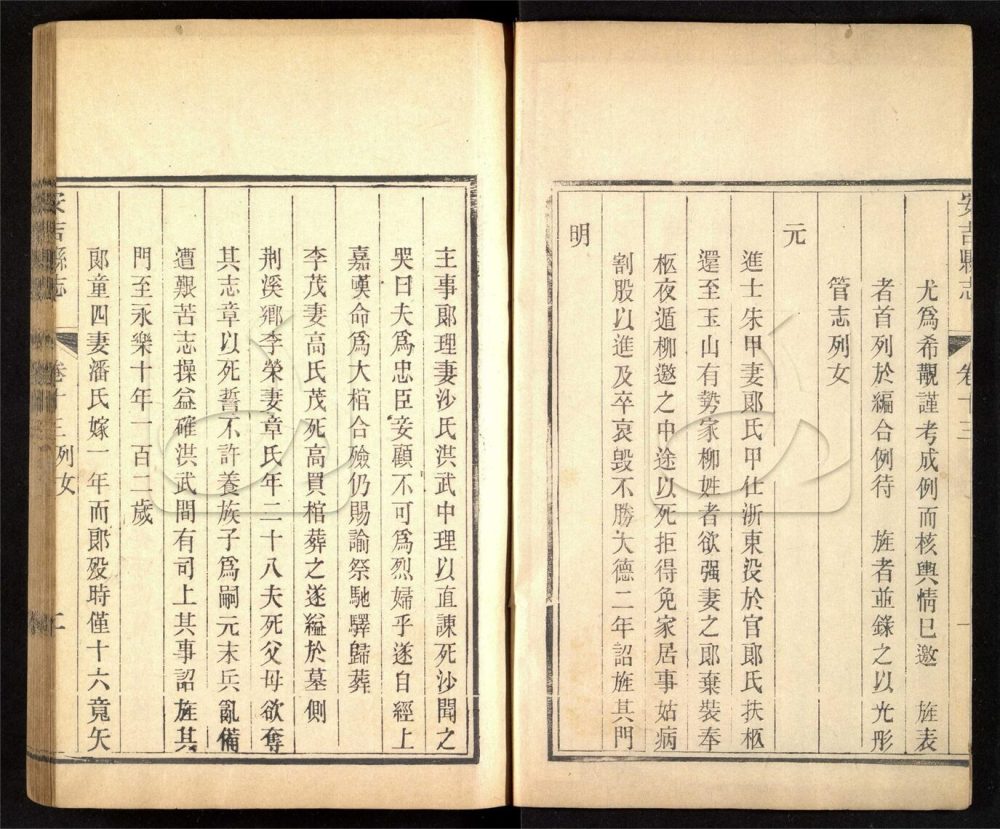 安吉縣志
卷十三
一
尤爲希覯謹考成例而核輿情已邀 旌表
者首列於編合例待 旌者並錄之以光彤
管志列女
元
進士朱甲妻郎氏甲仕浙東没於官郎氏扶柩
還至玉山有勢家柳姓者欲强妻之郎棄裝奉
柩夜遁柳邀之中途以死拒得免家居事姑病
割股以進及卒哀毁不勝大德二年詔旌其門
明
主事郎理妻沙氏洪武中理以直諫死沙聞之
哭曰夫爲忠臣妾顧不可爲烈婦乎遂自經上
嘉嘆命爲大棺合殮仍賜諭祭馳驛歸葬
李茂妻高氏茂死高買棺葬之遂縊於墓側
荆溪鄉李榮妻章氏年二十八夫死父母欲奪
其志章以死誓不許養族子爲嗣元末兵亂備
遭艱苦志操益確洪武間有司上其事詔旌其
門至永樂十年一百二歲
郎童四妻潘氏嫁一年而郎殁時僅十六竟矢
安吉縣志
卷十三 列女
二